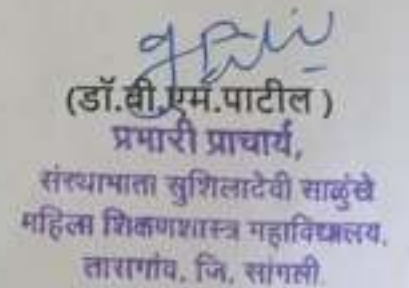 (डॉ.बी.एम.पाटील )
प्रभारी प्राचार्य,
संस्थामाता सुशिलादेवी साळुंखे
महिला शिक्षणशास्त्र महाविद्यालय,
तासगांव, जि. सांगली.